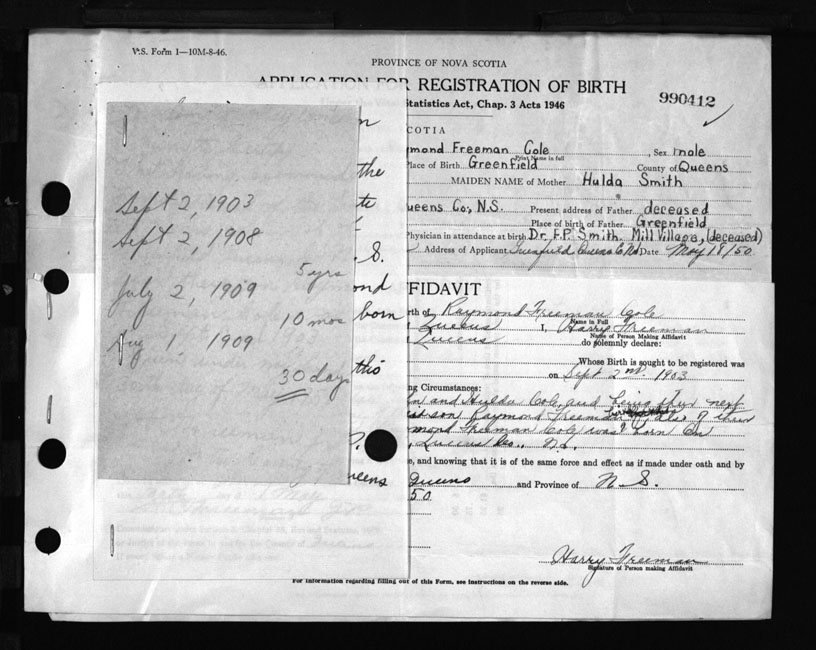 V.S. Form 1—10M-8-46.
PROVINCE OF NOVA SCOTIA
APPLICATION FOR REGISTRATION OF BIRTH
Statistics Act, Chap. 3 Acts 1946
990412
COTIA
mond Freeman Cole, Sex male
Print Name in full
Place of Birth Greenfield County of Queens
MAIDEN NAME of Mother Hulda Smith
ueens Co., N.S. Present address of Father deceased
Place of birth of Father Greenfield
Physician in attendance at birth Dr. F.P. Smith, Mill Village, (deceased)
Address of Applicant Date May 18/50
the
S.
ond
born
this
Sept 2, 1903
Sept 2, 1908
5 yrs
July 2, 1909
10 mos
Aug 1 1909
30 days
FFIDAVIT
rth of Raymond Freeman Cole
Name in Full
Queens I, Harry Freeman
Name of Person Making Affidavit
Queens do solemnly declare:
Whose Birth is sought to be registered was
on Sept 2nd 1903
ng Circumstances:
and Hulda Cole, and being their next
son Raymond Freeman also of their
mond Freeman Cole was born in
Queens Co., N.S.
e, and knowing that it is of the same force and effect as if made under oath and by
ueens Queens and Province of N.S.
50
Harry Freeman
Signature of Person making Affidavit
For information regarding filling out of this Form, see instructions on the reverse side.